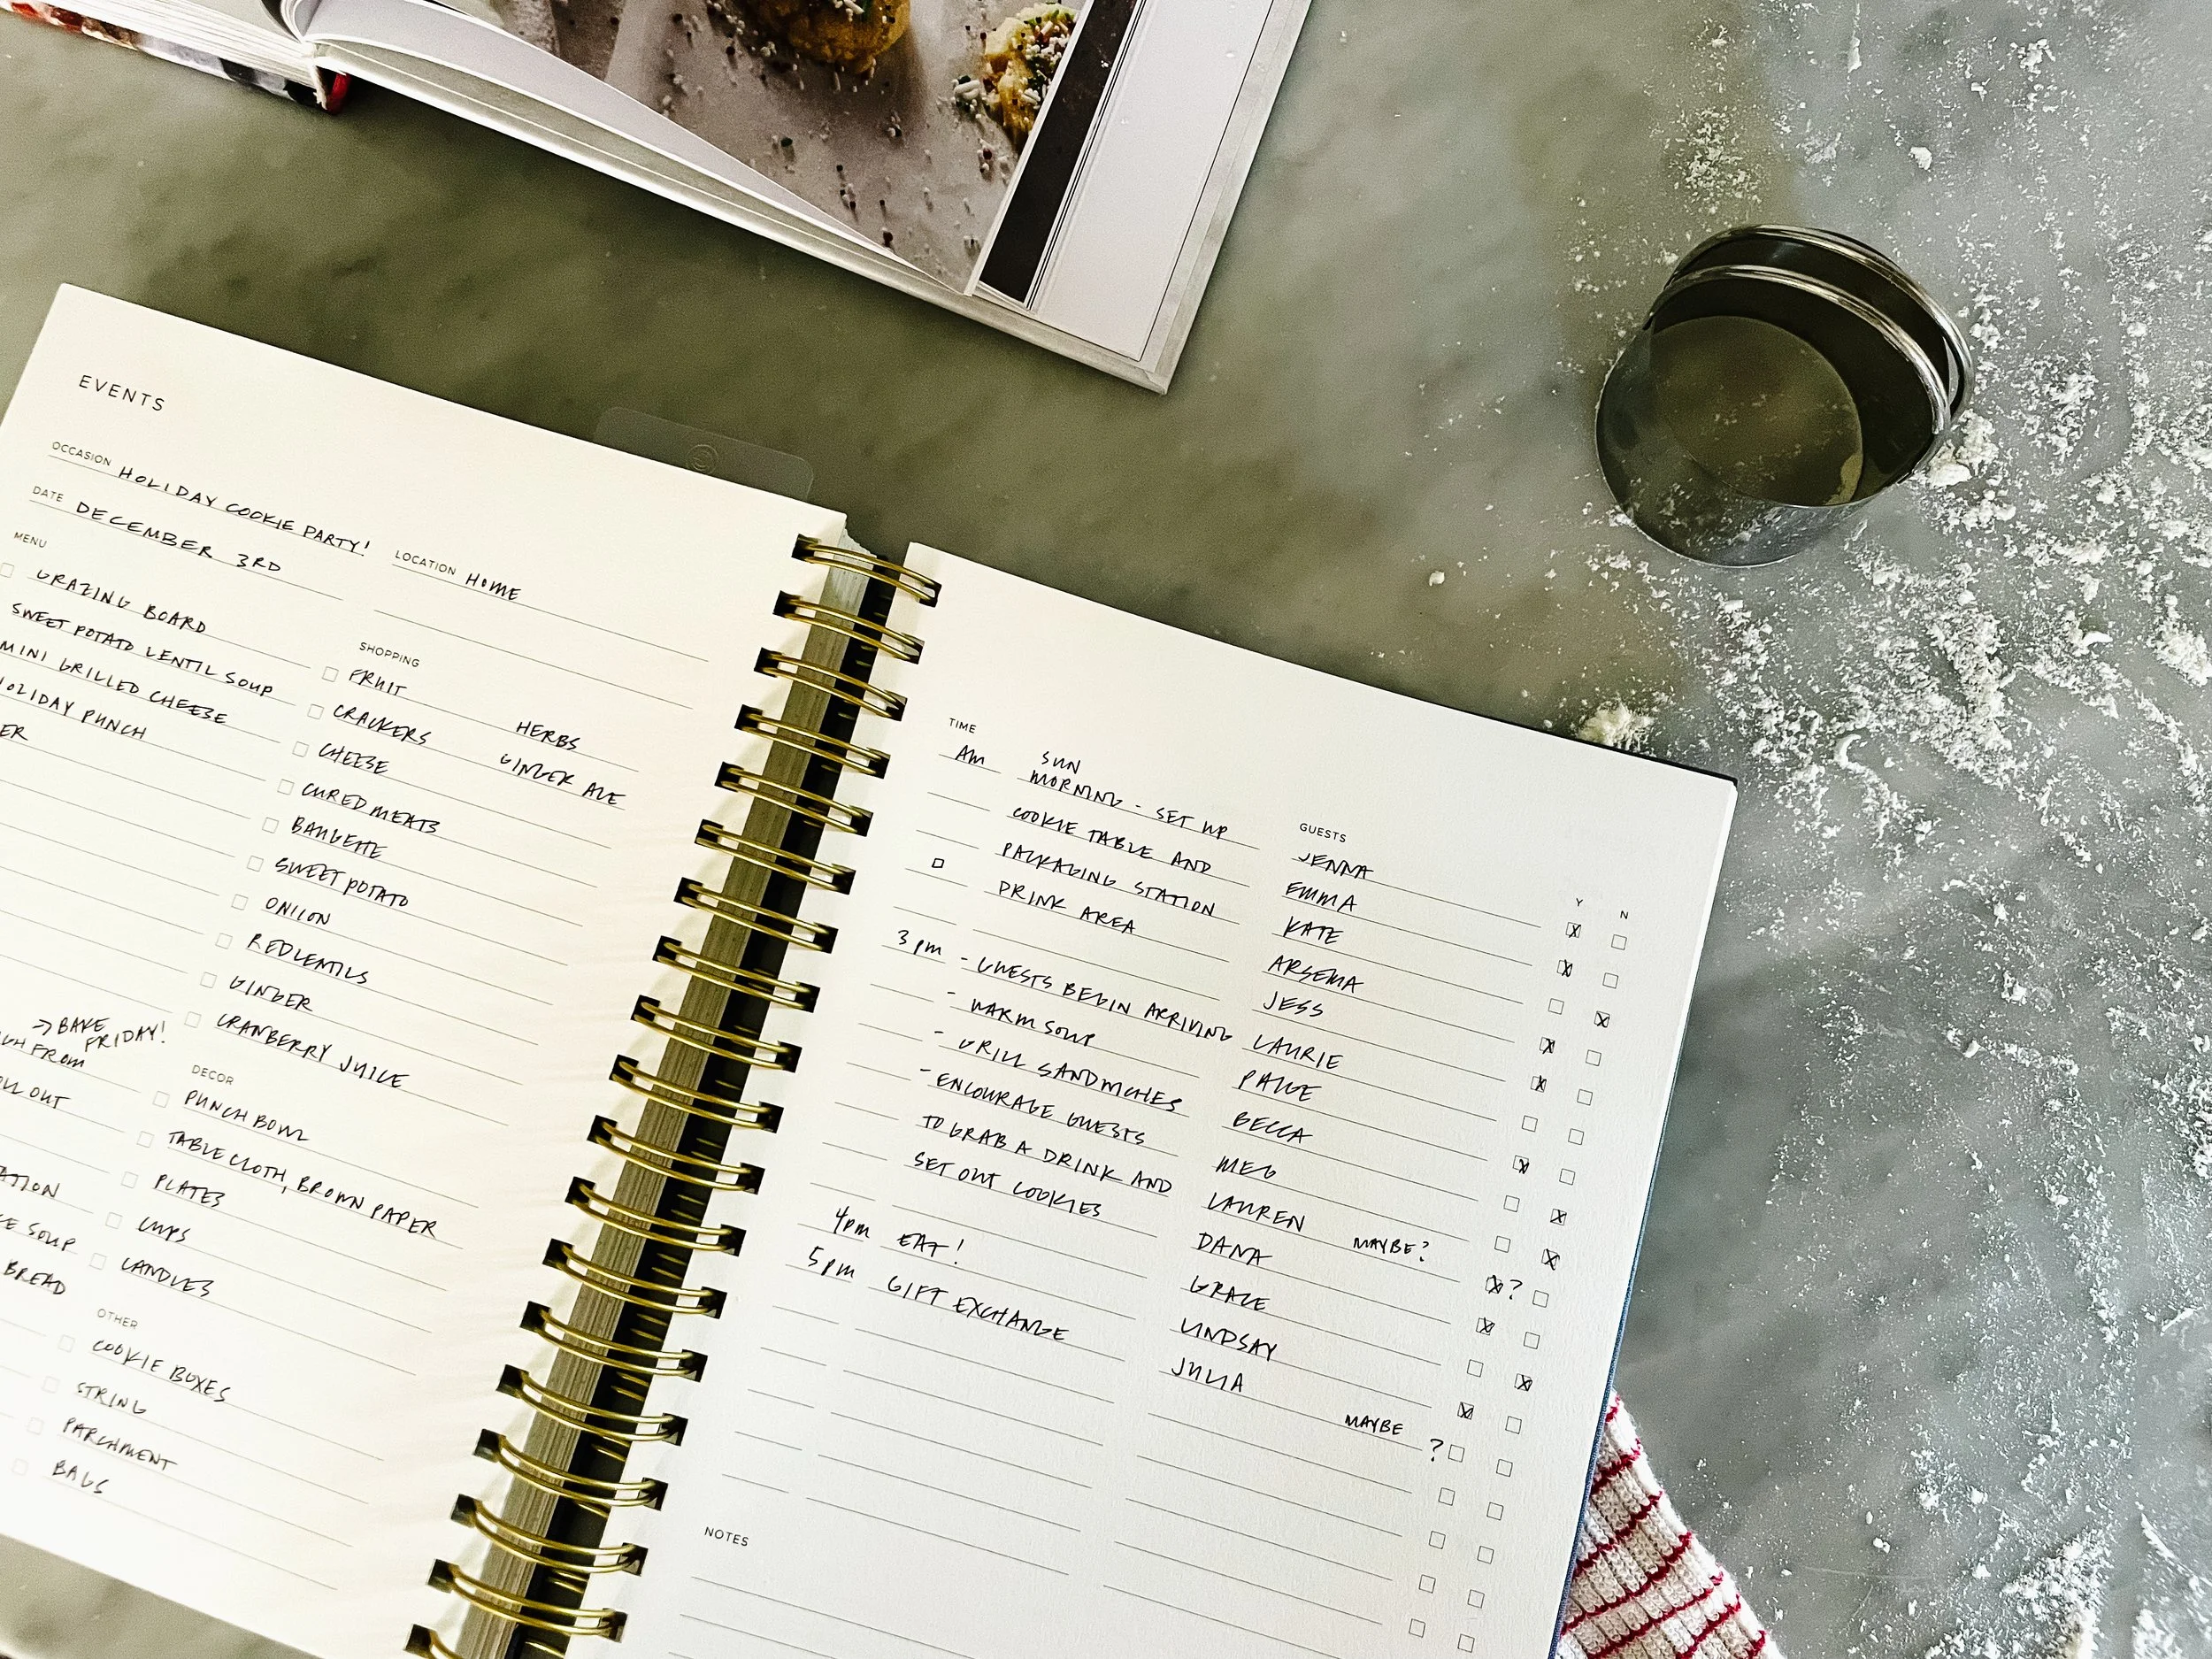 EVENTS
OCCASION HOLIDAY COOKIE PARTY!
DATE DECEMBER 3RD
LOCATION HOME
MENU
GRAZING BOARD
SWEET POTATO LENTIL SOUP
MINI GRILLED CHEESE
HOLIDAY PUNCH
ER
→ BAKE
FRIDAY!
FROM
OUT
ATION
SOUP
BREAD
SHOPPING
FRUIT
CRACKERS
CHEESE
CURED MEATS
BAGUETTE
SWEET POTATO
ONION
RED LENTILS
GINGER
CRANBERRY JUICE
HERBS
GINGER ALE
DECOR
PUNCH BOWL
TABLE CLOTH, BROWN PAPER
PLATES
CUPS
CANDLES
OTHER
COOKIE BOXES
STRING
PARCHMENT
BAGS
TIME
AM SUN
MORNING - SET UP
COOKIE TABLE AND
PACKAGING STATION
DRINK AREA
3pm - GUESTS BEGIN ARRIVING
- WARM SOUP
- GRILL SANDWICHES
- ENCOURAGE GUESTS
TO GRAB A DRINK AND
SET OUT COOKIES
4pm EAT!
5pm GIFT EXCHANGE
GUESTS
Y N
JENNA
EMMA
KATE
ARSEMA
JESS
LAURIE
PAIGE
BECCA
MEG
LAUREN MAYBE?
DANA ?
GRACE
LINDSAY
JULIA
MAYBE ?
NOTES